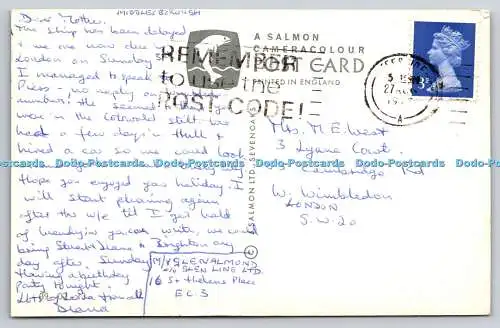 MIDDLESBROUGH
Dear Mother.
The ship has been delayed
& we are now due in
London on Sunday
I managed to speak to
Press - no reply on
number. the second
was in the Cotswolds still. We
had a few days in Hull &
hired a car so we could look
Hope you enjoyed your holiday. I
will start phoning again
after the w/e til I get hold
of you can write, we could
bring Stuart & Diana to Brighton any
day after Sunday
Having a birthday
Party tonight.
love from all
Diana
A SALMON
CAMERACOLOUR
POST CARD
PRINTED IN ENGLAND
REMEMBER
to use the
POST CODE!
© J SALMON LTD SEVENOAKS
M/V GLENALMOND
c/o GLEN LINE LTD.
16 St Helens Place
EC.3
5 15 PM
27 AUG
19
A
3½P
Mrs. M. E. West
3 Lynne Court.
Cambridge Rd
W. Wimbledon
LONDON
S.W. 20
Dodo-Postcards Dodo-Postcards Dodo-Postcards Dodo-Postcards Dodo-Postcards Dodo-Postcards